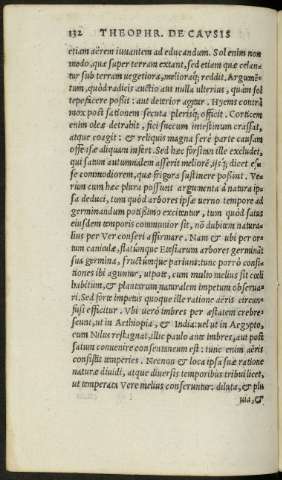 132 THEOPHR. DE CAVSIS
etiam aërem iuuantem ad educandum. Sol enim non
modo, quæ super terram extant, sed etiam quæ celan-
tur sub terram uegetiora, melioraq; reddit. Argumẽ-
tum, quòd radicis auctio aut nulla ulterius, quàm sol
tepefacere possit: aut deterior agitur. Hyems contrà
mox post sationem secuta plerisq; officit. Corticem
enim oleæ detrahit, fici succum intestinum crassat,
atque coagit: & reliquis magna ferè parte causam
offensæ aliquam infert. Sed hæc forsitan ille excludet,
qui satum autumnalem asserit meliorẽ, ijsq; dicet es-
se commodiorem, quæ frigora sustinere possint. Ve-
rùm cum hæc plura possunt argumenta à natura ip-
sa deduci, tum quòd arbores ipsæ uerno tempore ad
germinandum potissimo excitentur, tum quòd satus
eiusdem temporis communior sit, nõ dubium natura-
lius per Ver conseri affirmare. Nam & ubi per or-
tum caniculæ, flatúnque Etesiarum arbores germinãt
sua germina, fructúmque pariunt: tunc porrò consi-
tiones ibi aguntur, utpote, cum multo melius sit cœli
habitum, & plantarum naturalem impetum obserua-
ri. Sed forte impetus quoque ille ratione aëris circum-
fusi efficitur. Vbi uerò imbres per æstatem crebre-
scunt, ut in Aethiopia, & India: uel ut in Aegypto,
cum Nilus restagnat, illic paulo ante imbres, aut post
satum conuenire consentaneum est: tunc enim aëris
consistit temperies. Nec non & loca ipsa suæ ratione
naturæ diuidi, atque diuersis temporibus tribui licet,
ut temperata Vere melius conseruntur: dilata, & plu
uia, &